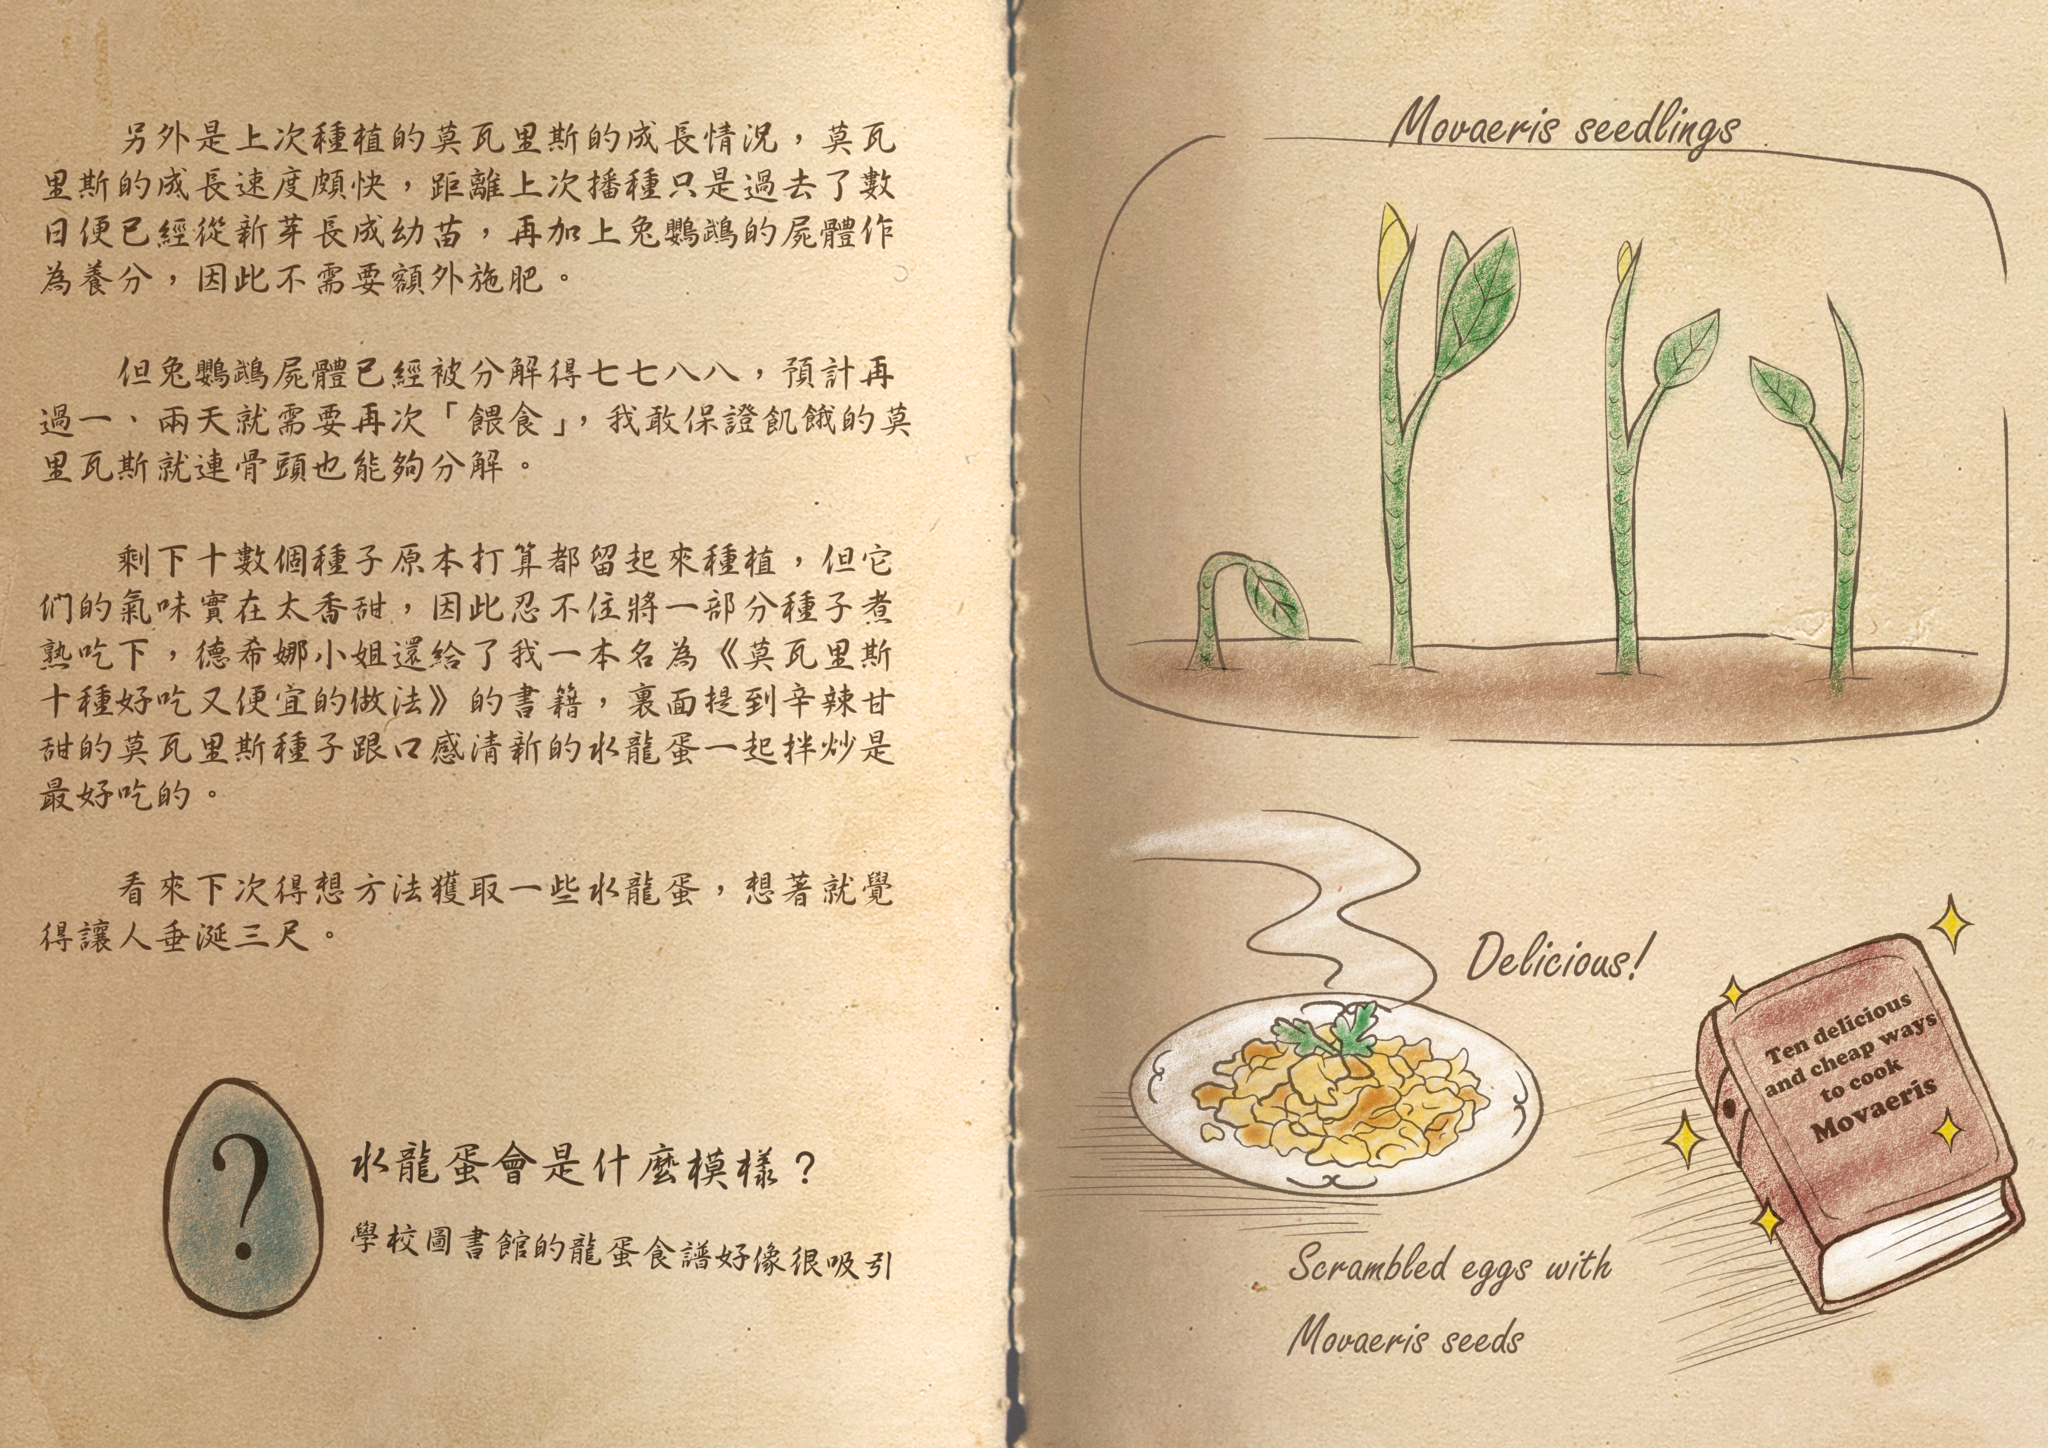 另外是上次種植的莫瓦里斯的成長情況，莫瓦
里斯的成長速度頗快，距離上次播種只是過去了數
日便已經從新芽長成幼苗，再加上兔鸚鵡的屍體作
為養分，因此不需要額外施肥。
但兔鸚鵡屍體已經被分解得七七八八，預計再
過一、兩天就需要再次「餵食」，我敢保證飢餓的莫
里瓦斯就連骨頭也能夠分解。
剩下十數個種子原本打算都留起來種植，但它
們的氣味實在太香甜，因此忍不住將一部分種子煮
熟吃下，德希娜小姐還給了我一本名為《莫瓦里斯
十種好吃又便宜的做法》的書籍，裏面提到辛辣甘
甜的莫瓦里斯種子跟口感清新的水龍蛋一起拌炒是
最好吃的。
看來下次得想方法獲取一些水龍蛋，想著就覺
得讓人垂涎三尺。
?
水龍蛋會是什麼模樣？
學校圖書館的龍蛋食譜好像很吸引
Movaeris seedlings
Delicious!
Ten delicious
and cheap ways
to cook
Movaeris
Scrambled eggs with
Movaeris seeds